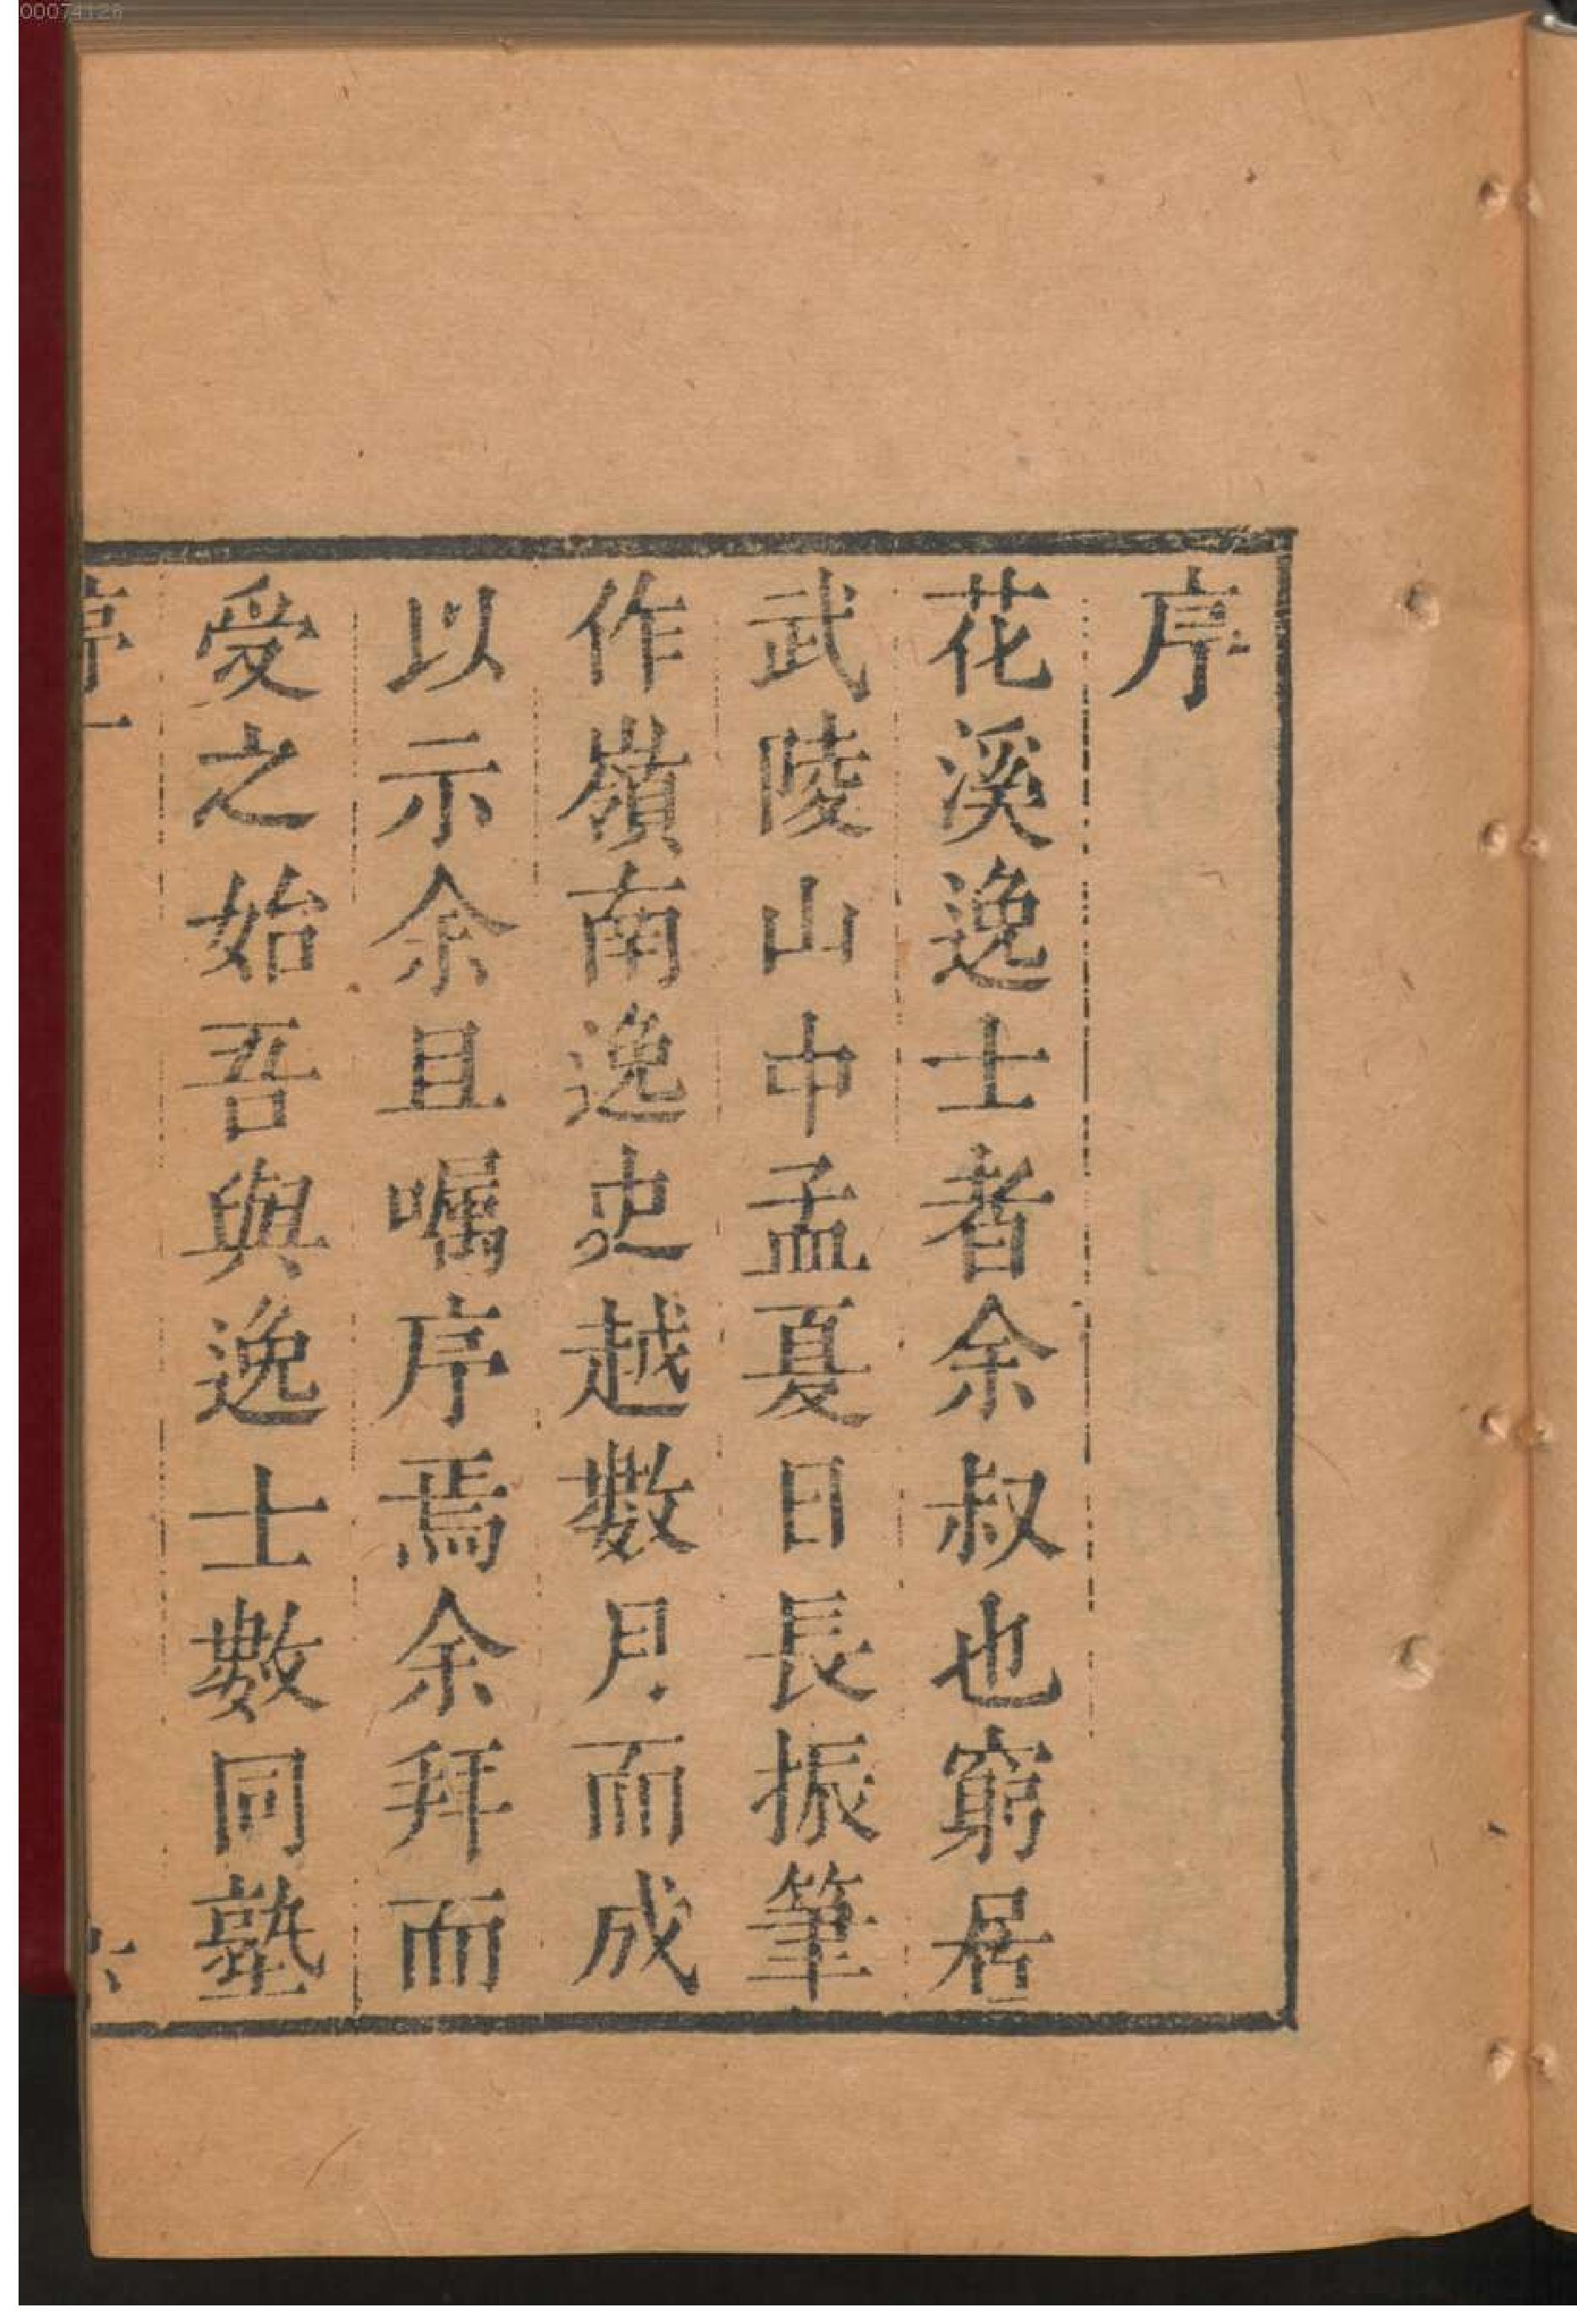 00074128
序
花溪逸士者余叔也窮居
武陵山中孟夏日長振筆
作嶺南逸史越數月而成
以示余且囑序焉余拜而
受之始吾與逸士數同塾